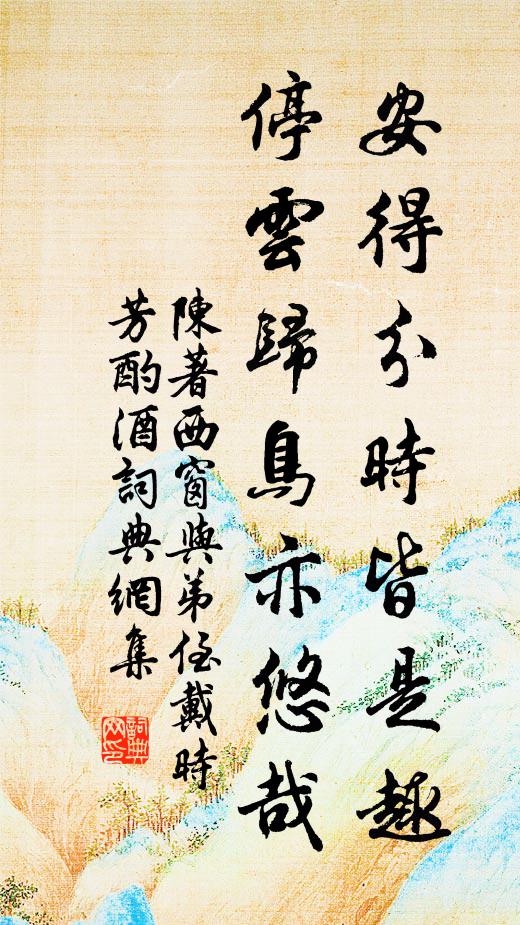 安得分時皆是趣
停雲歸鳥亦悠哉
陳著西窗與弟侄戴時
芳酌酒詞典網集
詞典網印